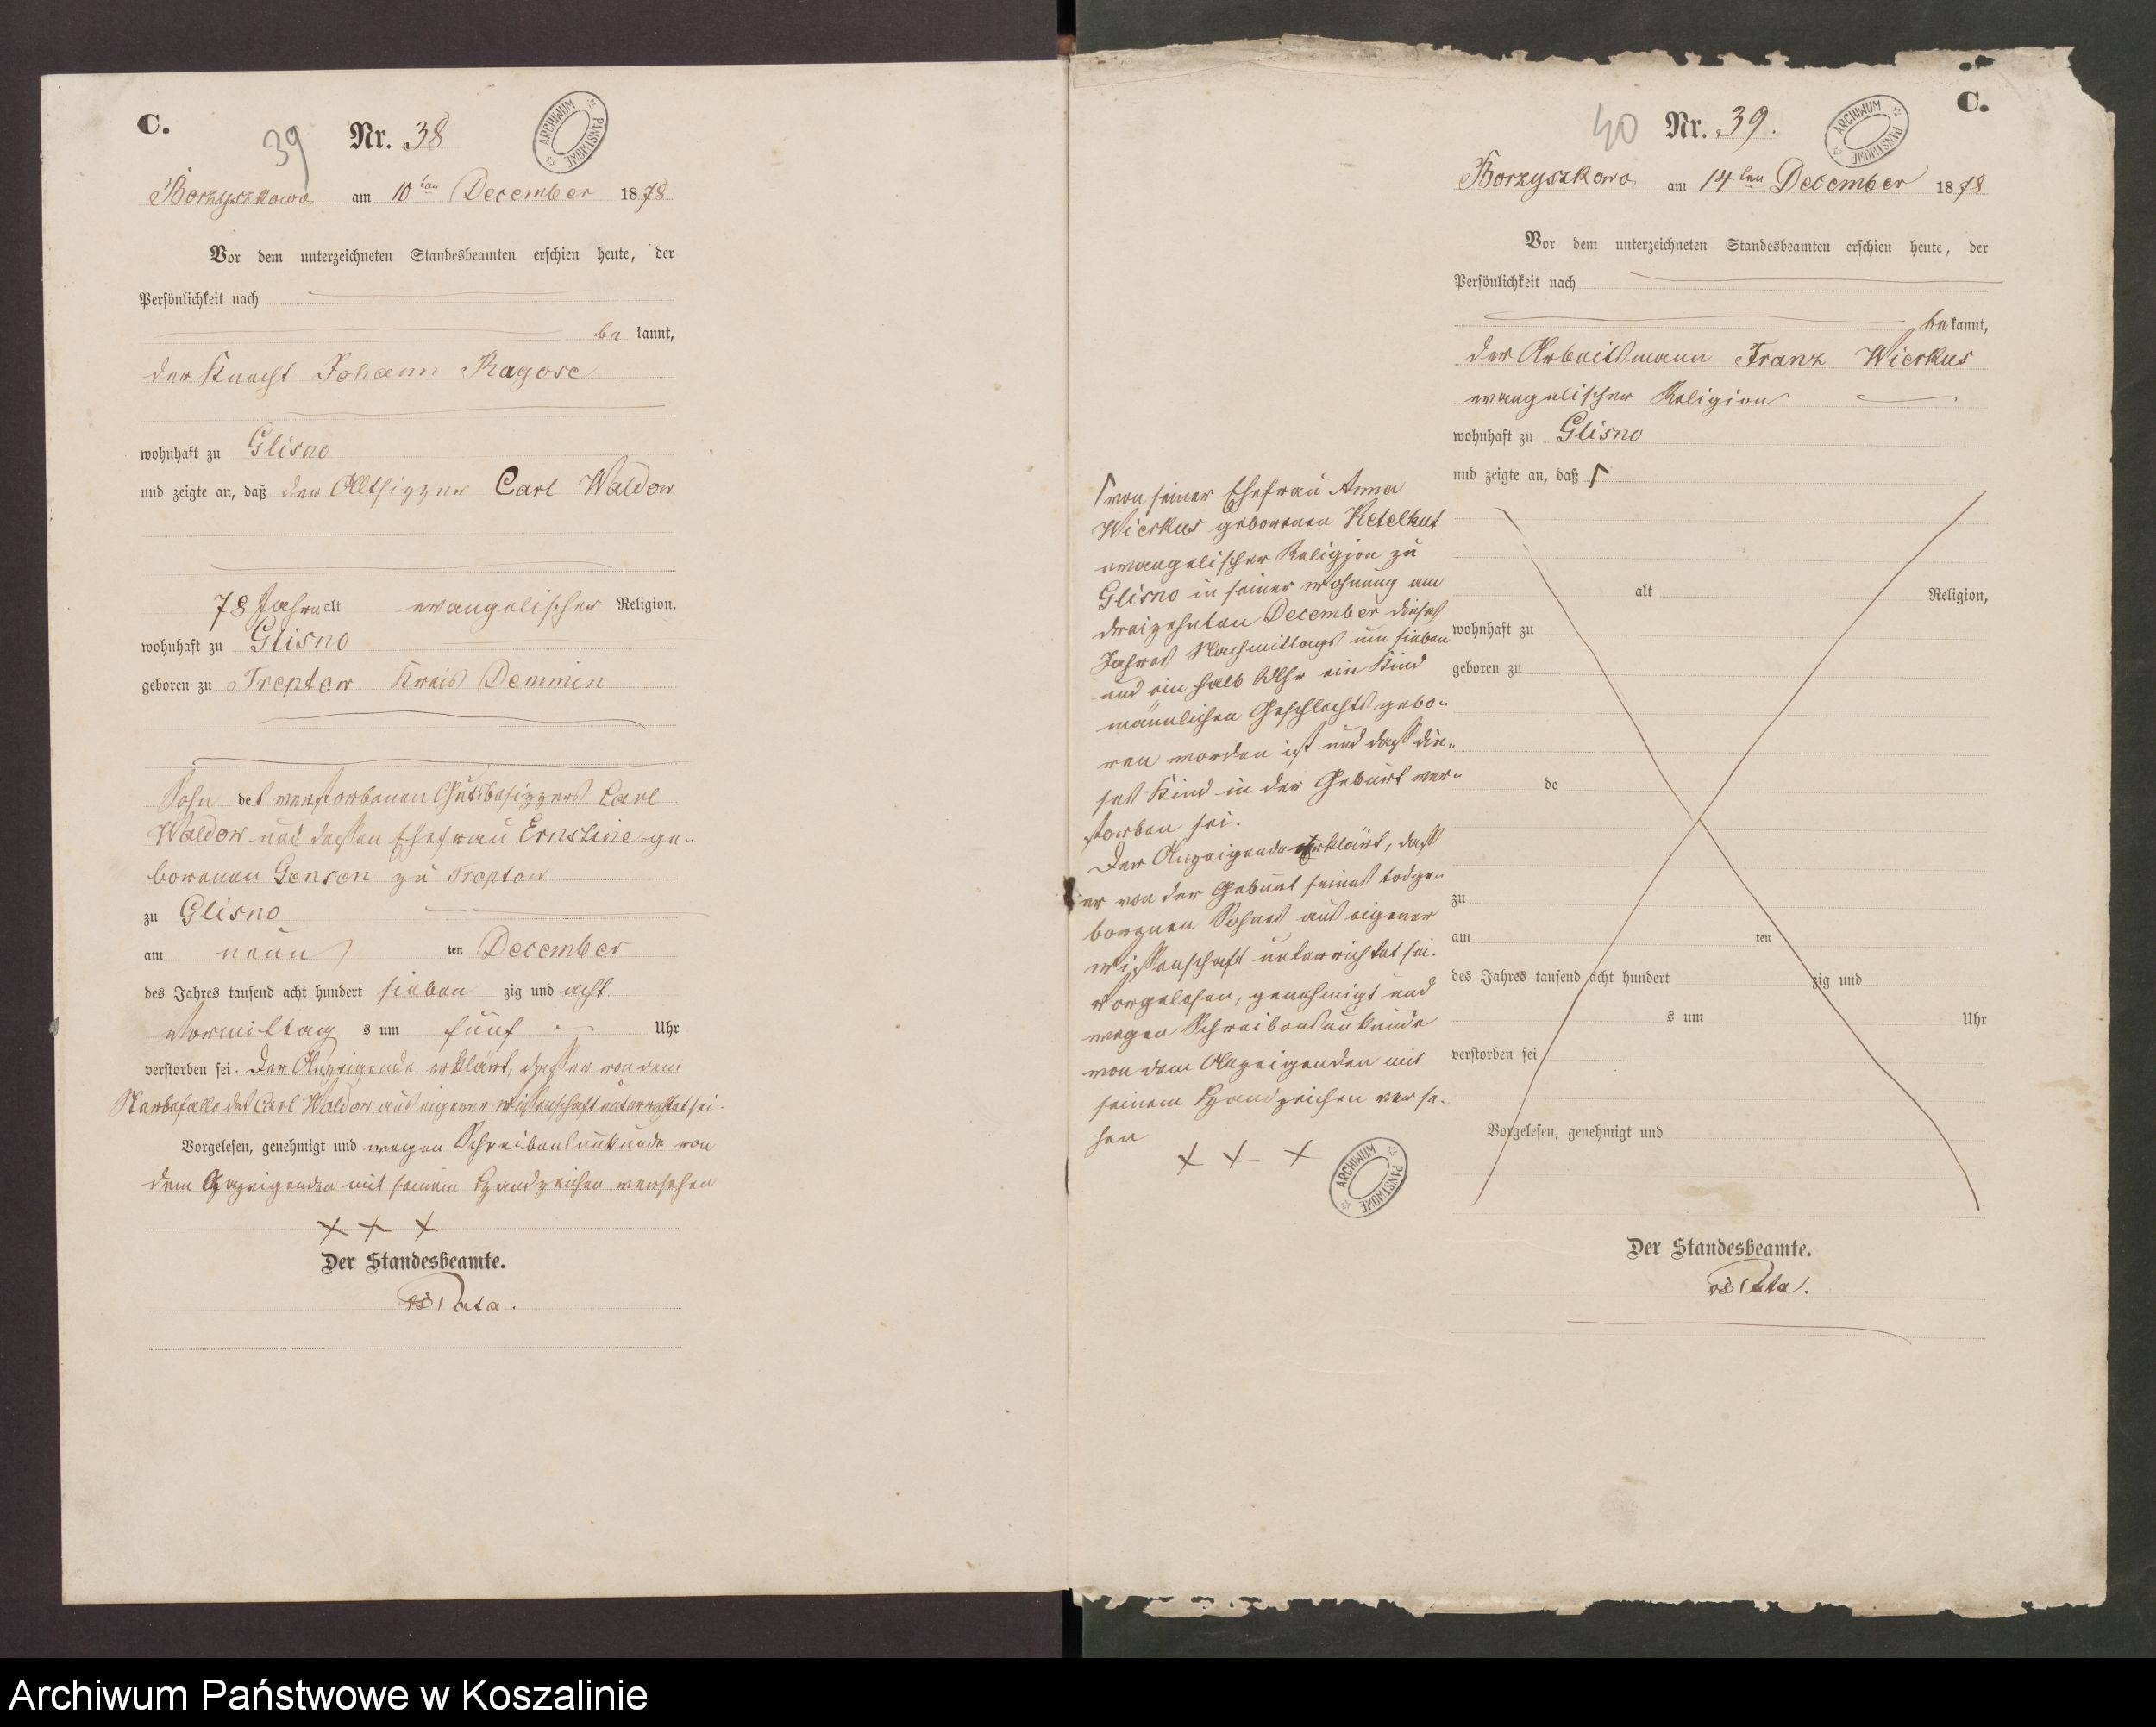 C.
39 Nr. 38
ARCHIWUM PAŃSTWOWE
Borzyszkowo, am 10ten December 1878
Vor dem unterzeichneten Standesbeamten erschien heute, der
Persönlichkeit nach
be kannt,
der Knecht Johann Ragose
wohnhaft zu Glisno
und zeigte an, daß der Altsizzer Carl Waldow
78 Jahre alt evangelischer Religion,
wohnhaft zu Glisno
geboren zu Treptow Kreis Demmin
Sohn des verstorbenen Gutsbesizzers Carl
Waldow und dessen Ehefrau Ernstine ge-
borenen Gensen zu Treptow
zu Glisno
am neun ten December
des Jahres tausend acht hundert sieben zig und acht
Vormittag s um fünf Uhr
verstorben sei. Der Anzeigende erklärt, daß er von dem
Sterbefalle des Carl Waldow aus eigener Wissenschaft unterrichtet sei.
Vorgelesen, genehmigt und wegen Schreibensunkunde von
dem Anzeigenden mit seinem Handzeichen versehen
+ + +
Der Standesbeamte.
Pata.
C.
40 Nr. 39.
ARCHIWUM PAŃSTWOWE
Borzyszkowo, am 14ten December 1878
Vor dem unterzeichneten Standesbeamten erschien heute, der
Persönlichkeit nach
bekannt,
der Arbeitsmann Franz Wierkus
evangelischer Religion
wohnhaft zu Glisno
und zeigte an, daß Γ
Γ von seiner Ehefrau Anna
Wierkus geborenen Ketelhut
evangelischer Religion zu
Glisno in seiner Wohnung am
dreizehnten December dieses
Jahres Nachmittags um sieben
und ein halb Uhr ein Kind
männlichen Geschlechts gebo-
ren worden ist und daß die-
ses Kind in der Geburt ver-
storben sei.
Der Anzeigende erklärt, daß
er von der Geburt seines todge-
bornen Sohnes aus eigener
Wissenschaft unterrichtet sei.
Vorgelesen, genehmigt und
wegen Schreibensunkunde
von dem Anzeigenden mit
seinem Handzeichen verse-
hen
+ + +
ARCHIWUM PAŃSTWOWE
alt Religion,
wohnhaft zu
geboren zu
de
zu
am ten
des Jahres tausend acht hundert zig und
s um Uhr
verstorben sei
Vorgelesen, genehmigt und
Der Standesbeamte.
Pata.
Archiwum Państwowe w Koszalinie